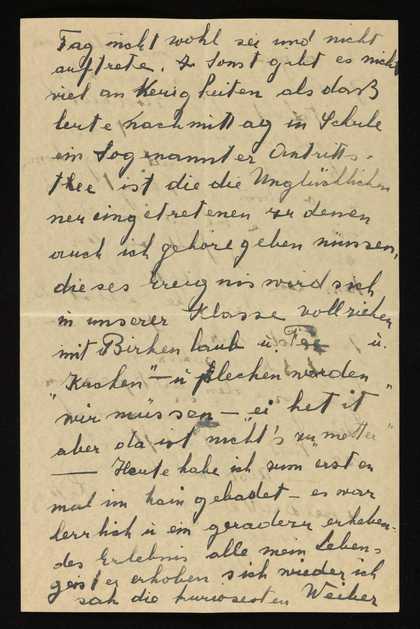 Tag nicht wohl sei und nicht
auftrete. Sonst gibt es nicht
viel an Neuigkeiten als daß
heute Nachmittag in Schule
ein Sogenannter Antritts-
thee ist die die Unglücklichen
neueingetretenen zu denen
auch ich gehöre geben müssen,
dieses Ereignis wird sich
in unserer Klasse vollziehen
mit Birkenlaub u. Tee u.
"Kuchen" – u
"wir müssen – ei
aber da ist nicht's zu
— Heute habe ich zum ersten
mal im hain gebadet – es war
herrlich u ein geradezu erheben-
des Erlebnis alle mein Lebens-
geister erhoben sich wieder, ich
sah die kuriosesten Weiber